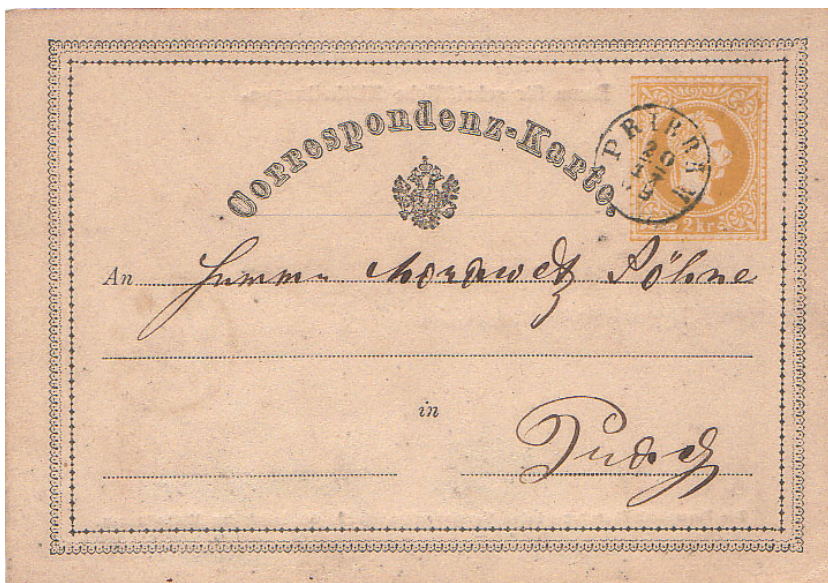 Correspondenz-Karte.
PRIBRA M
20
2 kr
An Herren Morawetz Söhne
in